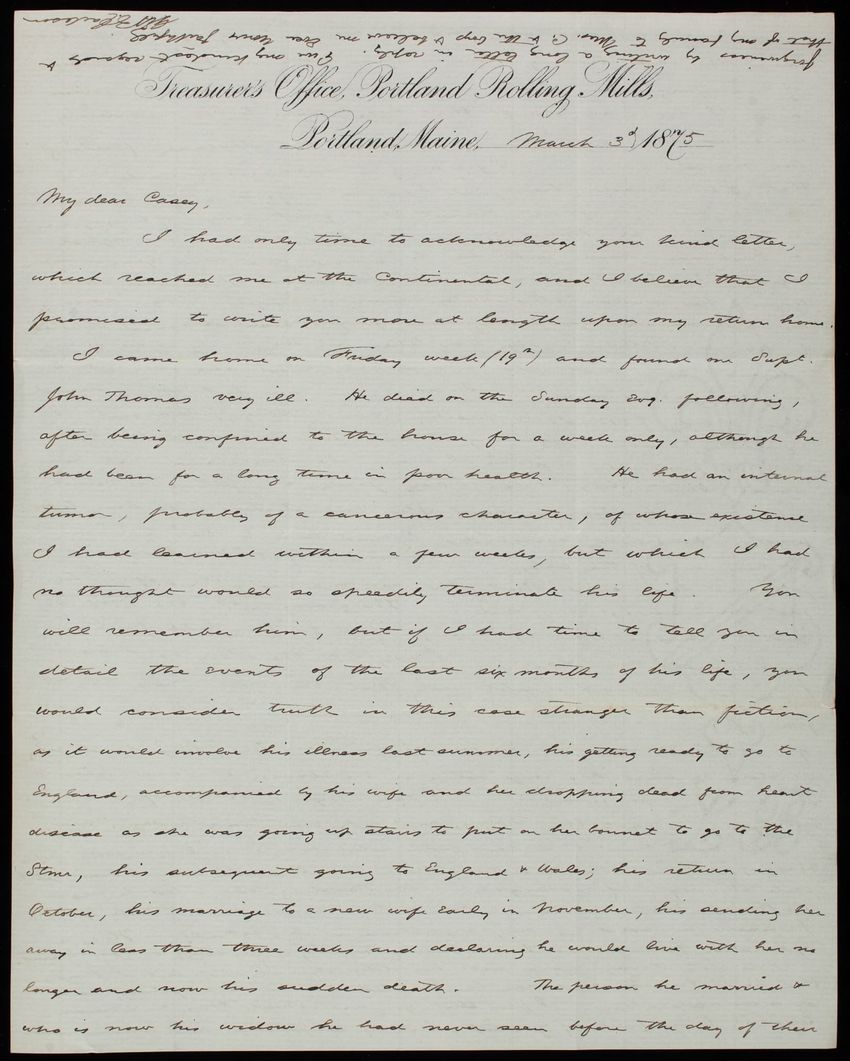 forgiveness by writing a long letter in reply. Give my kindest regards &
that of my family to Mrs. C. & the boys & believe me Ever Yours faithfully.
Treasurer's Office, Portland Rolling Mills,
Portland, Maine, March 3d 1875
My dear Casey,
I had only time to acknowledge your kind letter,
which reached me at the Continental, and I believe that I
promised to write you more at length upon my return home.
I came home on Friday week (19th) and found our Supt.
John Thomas very ill. He died on the Sunday Evg. following,
after being confined to the house for a week only, although he
had been for a long time in poor health. He had an internal
tumor, probably of a cancerous character, of whose existence
I had learned within a few weeks, but which I had
no thought would so speedily terminate his life. You
will remember him, but if I had time to tell you in
detail the events of the last six months of his life, you
would consider truth in this case stranger than fiction,
as it would involve his illness last summer, his getting ready to go to
England, accompanied by his wife and her dropping dead from heart
disease as she was going up stairs to put on her bonnet to go to the
Stmr, his subsequent going to England & Wales; his return in
October, his marriage to a new wife early in November, his sending her
away in less than three weeks and declaring he would live with her no
longer and now his sudden death. The person he married &
who is now his widow he had never seen before the day of their